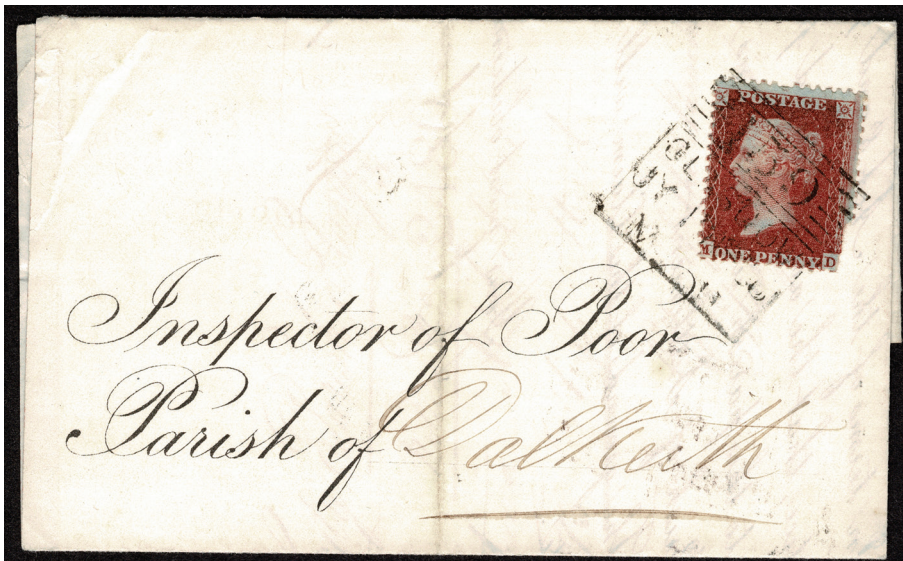 POSTAGE
M ONE PENNY D
Inspector of Poor
Parish of Dalkeith